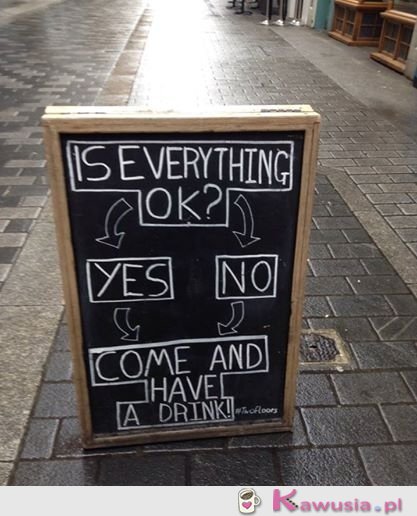 IS EVERYTHING
OK?
YES NO
COME AND
HAVE
A DRINK! #TwoFloors
Kawusia.pl